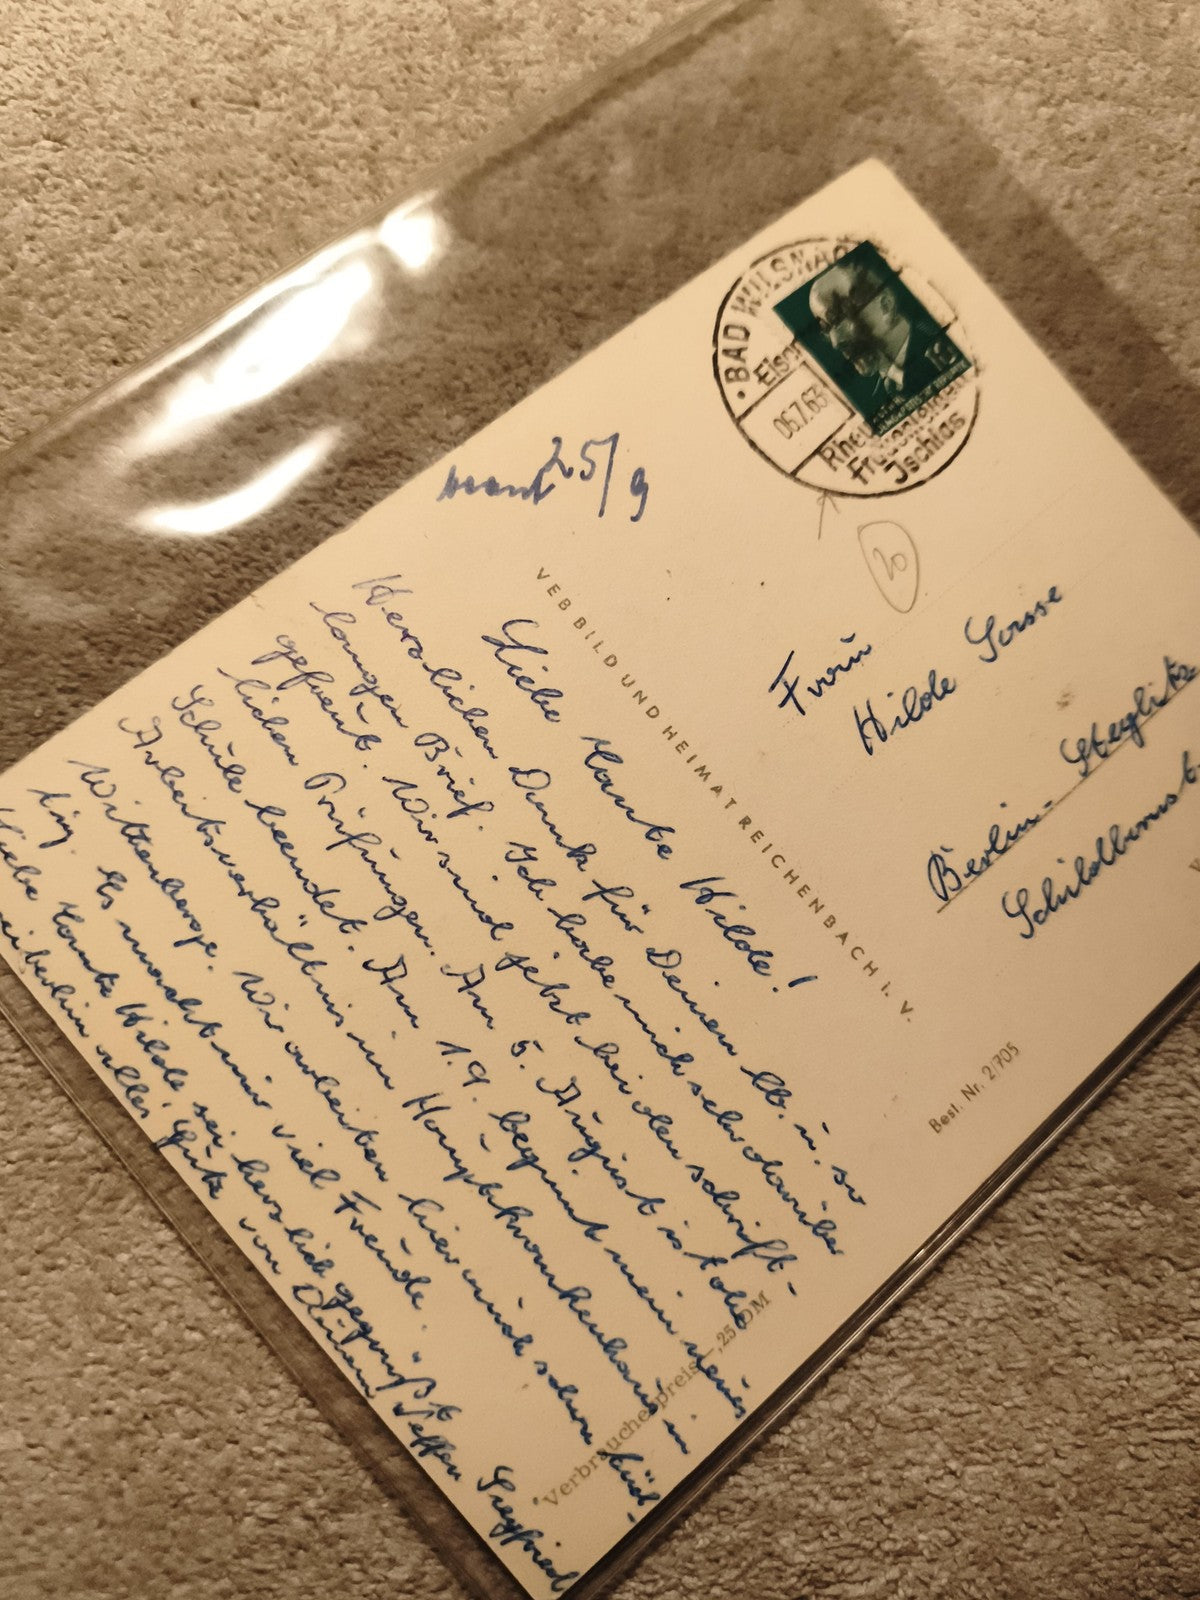 BAD WILSNACK
Eisen
06.7.63
Rheu
Frauenleiden
Ischias
10
beant 25/9
20
VEB BILD UND HEIMAT REICHENBACH I. V.
Frau
Hilde Sasse
Berlin-Steglitz
Schildhornst.
Best. Nr. 2/705
Verbraucherpreis —,25 DM
Liebe Tante Hilde!
Herzlichen Dank für Deinen lb. u. so
langen Brief. Ich habe mich sehr darüber
gefreut. Wir sind jetzt bei den schrift-
lichen Prüfungen. Am 5. August ist die
Schule beendet. Am 1.9. beginnt mein neues
Arbeitsverhältnis im Hauptkrankenhaus in
Wittenberge. Wir arbeiten hier auch schon tüch-
tig. Es macht mir viel Freude.
Liebe Tante Hilde sei herzlich gegrüßt
alles Gute von Deinem Neffen Siegfried